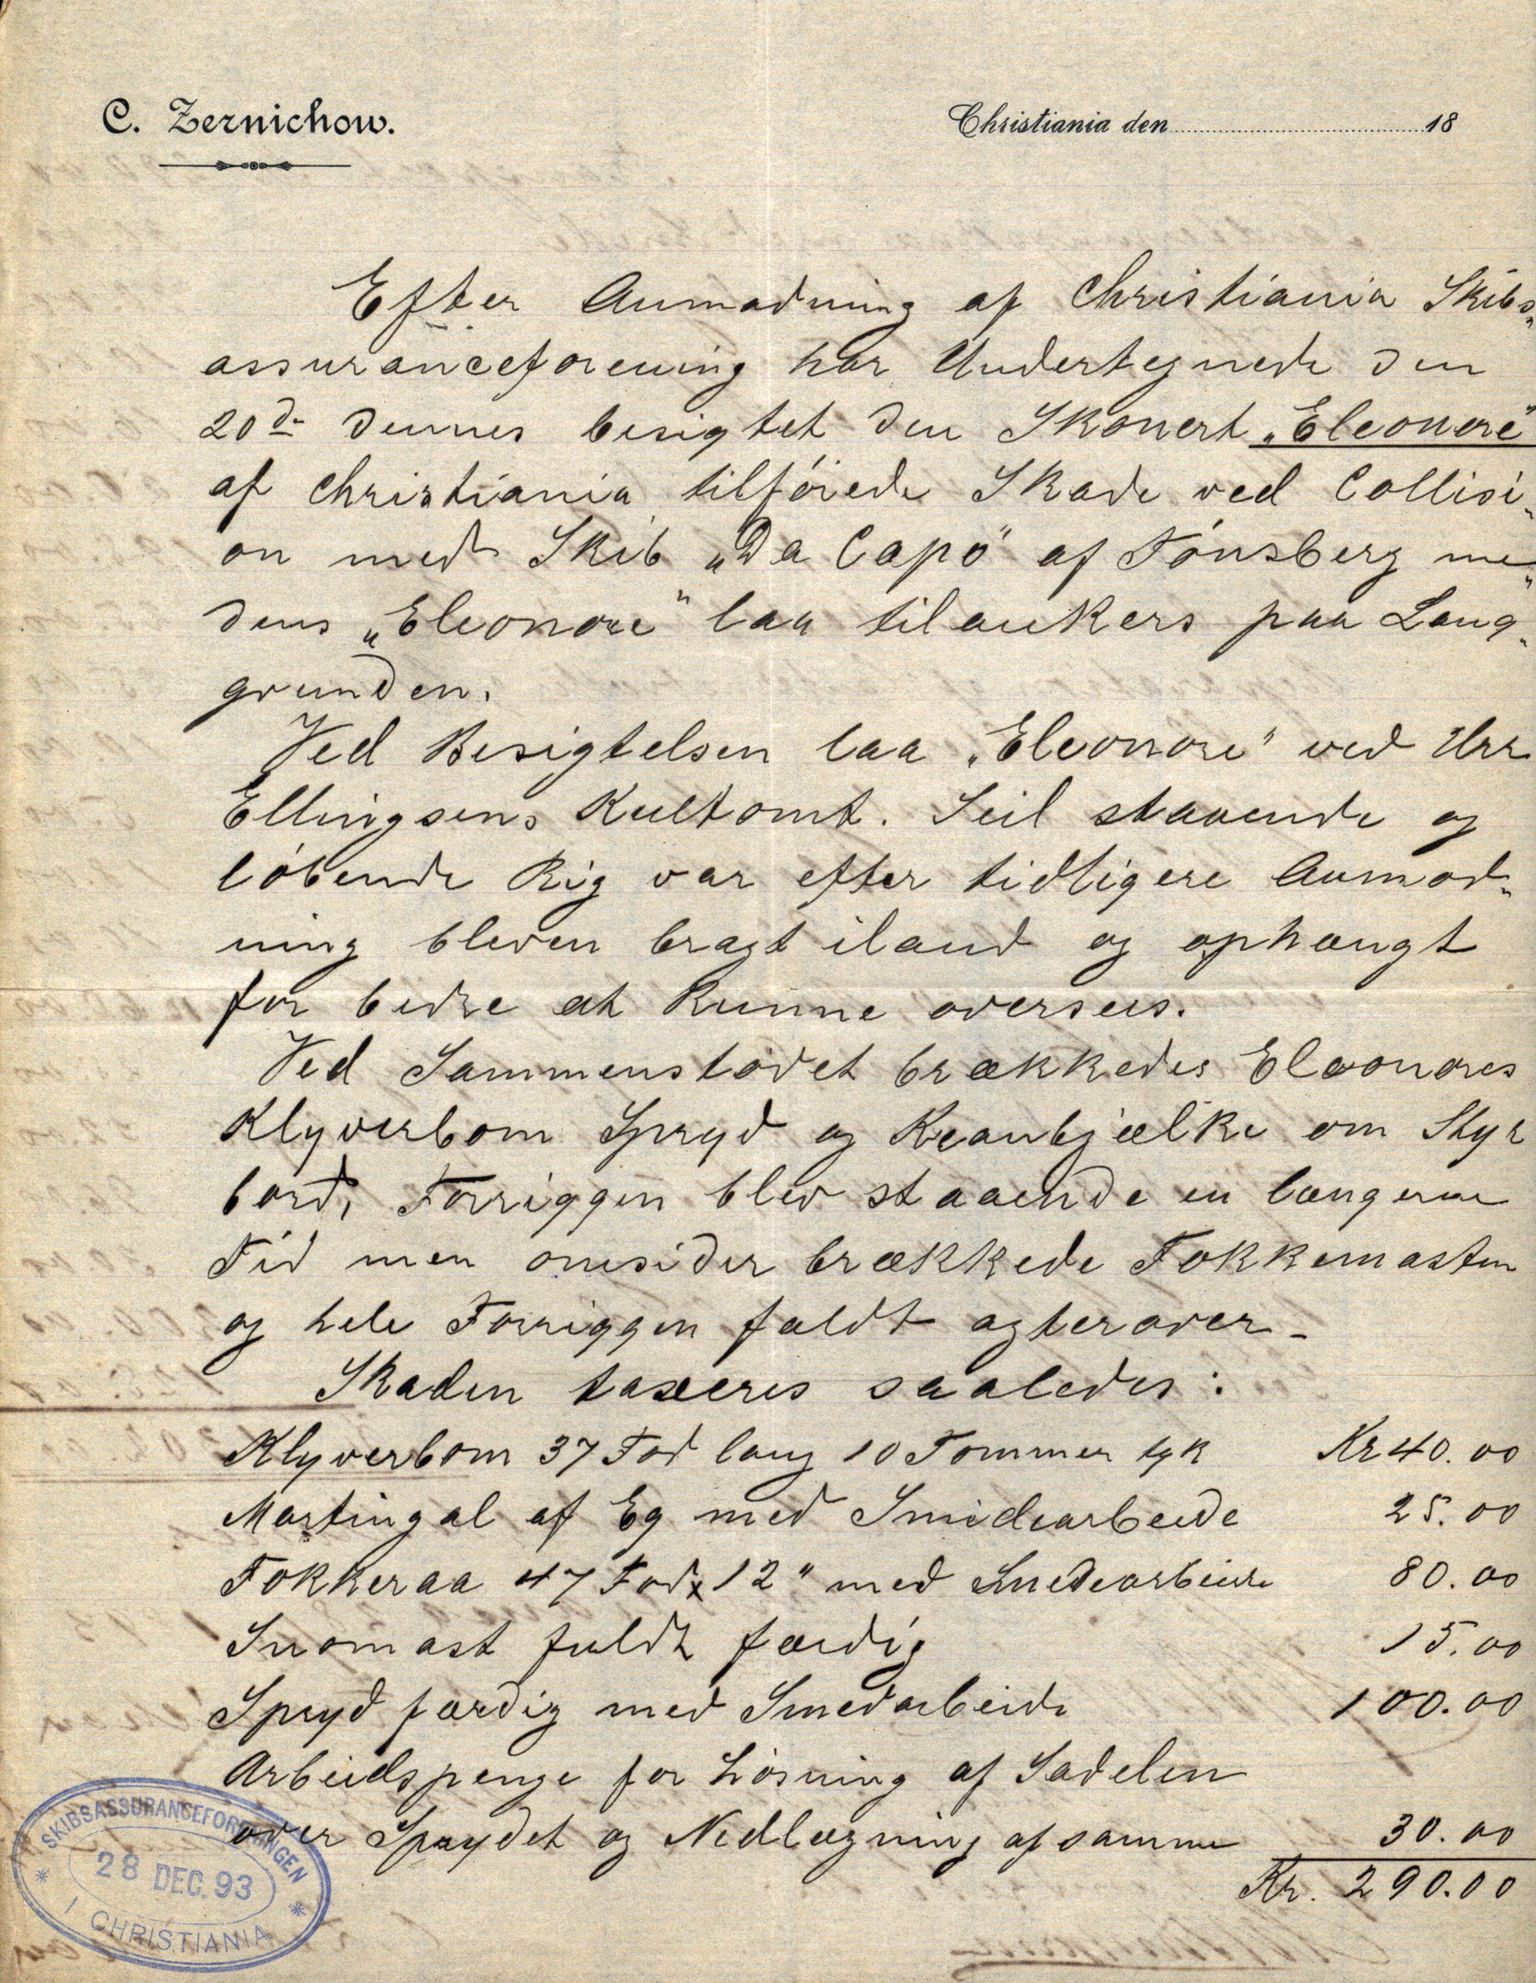 C. Zernichow.
Christiania den 18
Efter Anmodning af Christiania Skibs„
assuranceforening har Undertegnede den
20de dennes besigtet den Skonert „Eleonore”
af Christiania tilføiede Skade ved Collisi„
on med Skib „Da Capo” af Tønsberg me„
dens „Eleonore” laa tilankers paa Lang„
grunden.
Ved Besigtelsen laa „Eleonore” ved Hrr
Ellingsens Kultomt. Seil staaende og
løbende Rig var efter tidligere Anmod„
ning bleven bragt iland og ophængt
for bedre at kunne oversees.
Ved Sammenstødet brækkedes Eleonores
Klyverbom Spryd og Kranbjælke om Styr
bord, Forriggen blev staaende en længere
Tid men omsider brækkede Fokkemasten
og hele Forriggen faldt agterover -
Skaden taxeres saaledes:
Klyverbom 37 Fod lang 10 Tommer tyk Kr 40.00
Martingal af Eg med Smidearbeide 25.00
Fokkeraa 47 Fod x 12" med Smedearbeide 80.00
Snomast fuldt færdig 15.00
Spryd færdig med Smedarbeide 100.00
Arbeidspenge for Løsning af Sadelen
over Sprydet og Nedlægning af samme 30.00
Kr. 290.00
SKIBSASSURANCEFORENINGEN
28 DEC. 93
I CHRISTIANIA